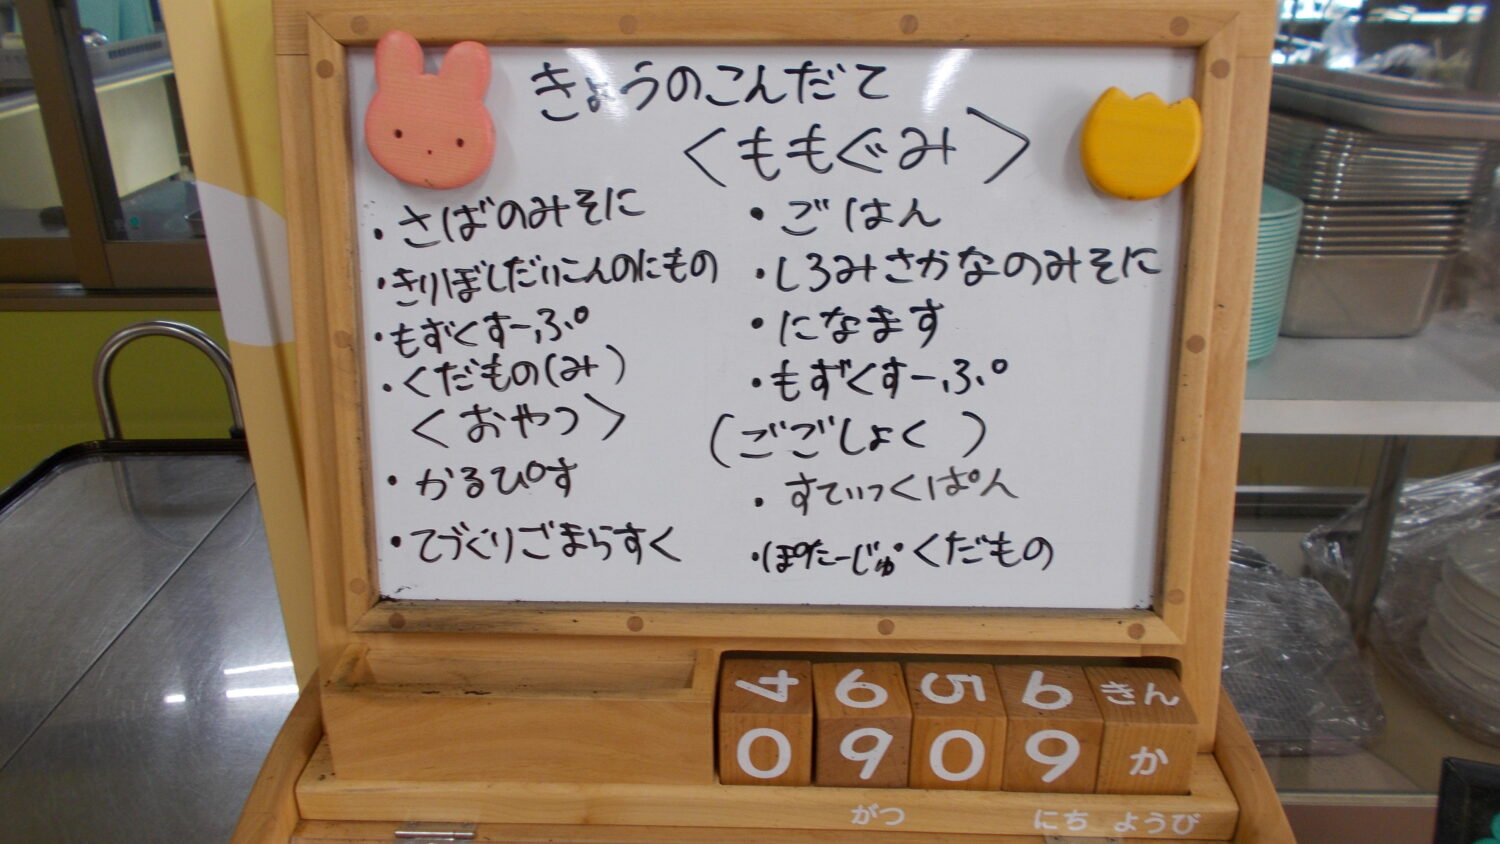 きょうのこんだて
・さばのみそに
・きりぼしだいこんのにもの
・もずくすーぷ
・くだもの(みかん)
<おやつ>
・かるぴす
・てづくりごまらすく
<ももぐみ>
・ごはん
・しろみさかなのみそに
・になます
・もずくすーぷ
(ごごしょく)
・すてぃっくぱん
・ぽたーじゅ・くだもの
4 6 5 6 きん
0 9 0 9 か
がつ にち ようび